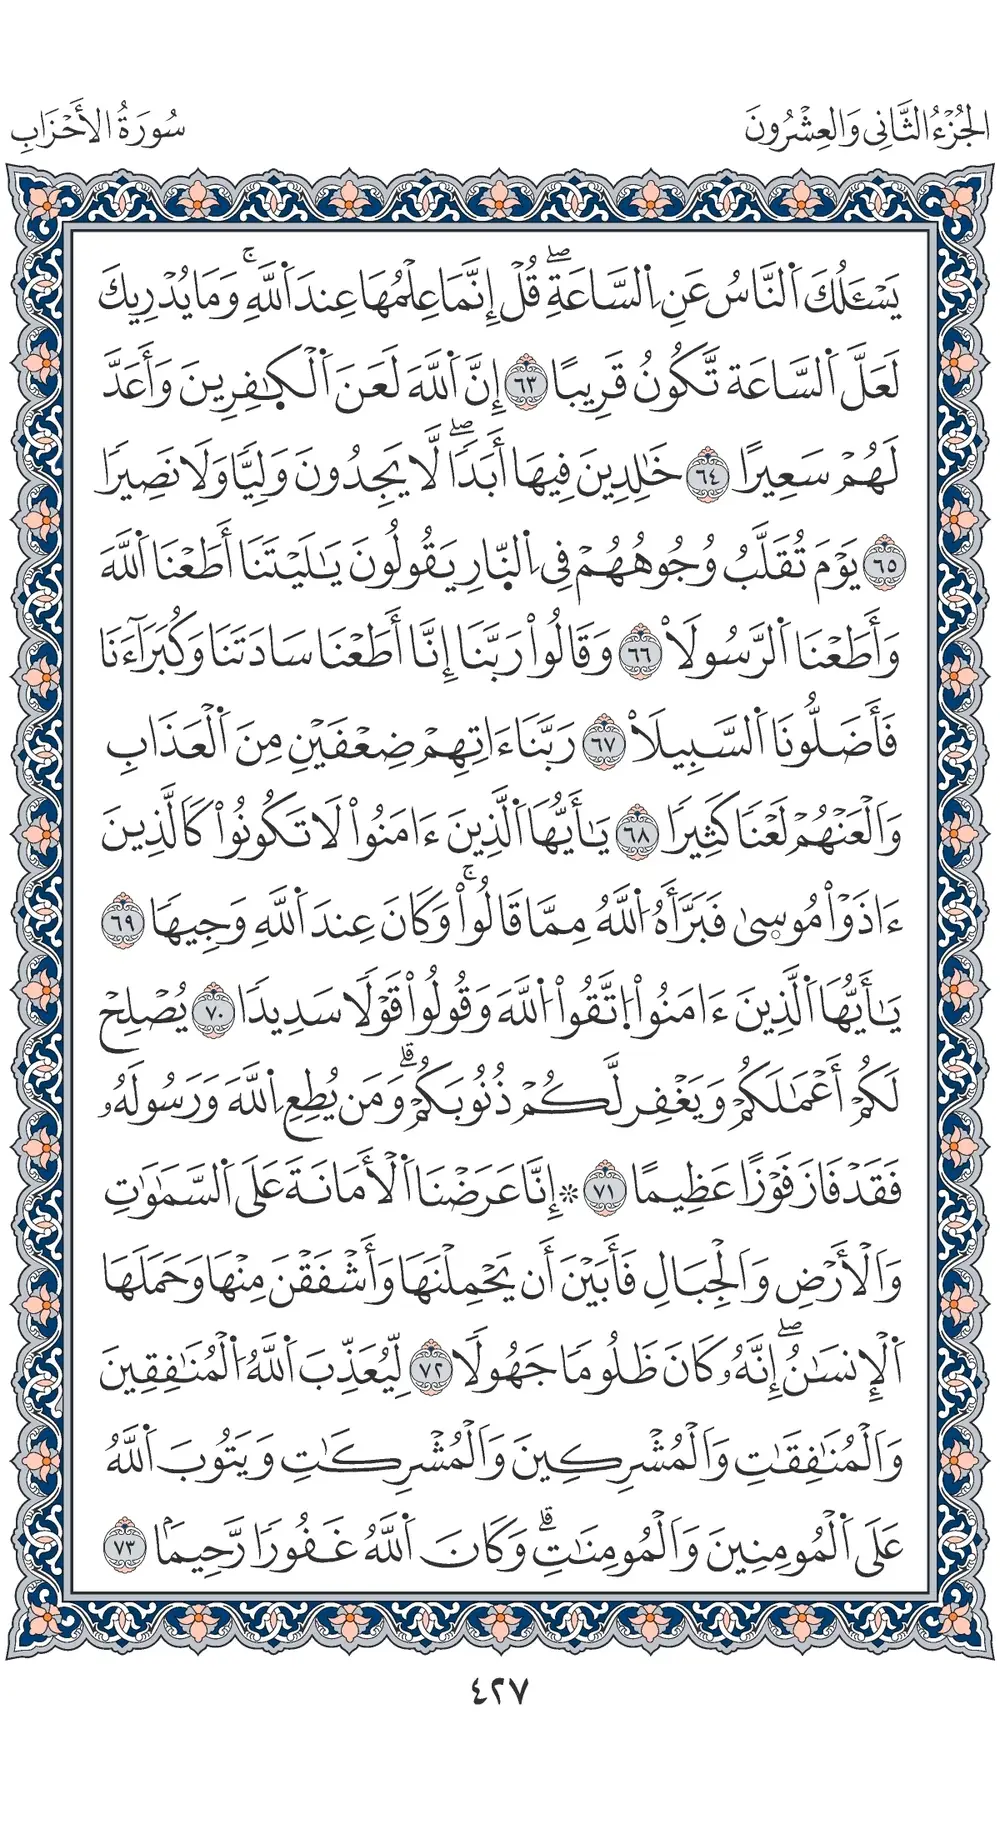 الجُزْءُ الثَّانِي وَالعِشْرُونَ
سُورَةُ الأَحْزَابِ
يَسْـَٔلُكَ اَ۬لنَّاسُ عَنِ اِ۬لسَّاعَةِۖ قُلْ إِنَّمَا عِلْمُهَا عِندَ اَ۬للَّهِۚ وَمَا يُدْرِيكَ
لَعَلَّ اَ۬لسَّاعَة تَّكُونُ قَرِيبًا ٦٣ إِنَّ اَ۬للَّهَ لَعَنَ اَ۬لْكٰ۪فِرِينَ وَأَعَدَّ
لَهُمْ سَعِيرًا ٦٤ خَٰلِدِينَ فِيهَا أَبَدٗاۖ لَّا يَجِدُونَ وَلِيّٗا وَلَا نَصِيرٗا
٦٥ يَوْمَ تُقَلَّبُ وُجُوهُهُمْ فِي اِ۬لنّ۪ارِ يَقُولُونَ يَٰلَيْتَنَا أَطَعْنَا اَ۬للَّهَ
وَأَطَعْنَا اَ۬لرَّسُولَاْ ٦٦ وَقَالُواْ رَبَّنَا إِنَّا أَطَعْنَا سَادَتَنَا وَكُبَرَآءَنَا
فَأَضَلُّونَا اَ۬لسَّبِيلَاْ ٦٧ رَبَّنَا ءَاتِهِمْ ضِعْفَيْنِ مِنَ اَ۬لْعَذَابِ
وَالْعَنْهُمْ لَعْنٗا كَثِيرٗا ٦٨ يَٰأَيُّهَا اَ۬لَّذِينَ ءَامَنُواْ لَا تَكُونُواْ كَالَّذِينَ
ءَاذَوْاْ مُوس۪ىٰ فَبَرَّأَهُ اُ۬للَّهُ مِمَّا قَالُواْۚ وَكَانَ عِندَ اَ۬للَّهِ وَجِيهٗا ٦٩
يَٰأَيُّهَا اَ۬لَّذِينَ ءَامَنُواْ اُ۪تَّقُواْ اُ۬للَّهَ وَقُولُواْ قَوْلٗا سَدِيدٗا ٧٠ يُصْلِحْ
لَكُمْ أَعْمَٰلَكُمْ وَيَغْفِر لَّكُمْ ذُنُوبَكُمْۗ وَمَن يُطِعِ اِ۬للَّهَ وَرَسُولَهُۥ
فَقَدْ فَازَ فَوْزًا عَظِيمًا ٧١ * إِنَّا عَرَضْنَا اَ۬لْأَمَانَةَ عَلَى اَ۬لسَّمَٰوَٰتِ
وَالْأَرْضِ وَالْجِبَالِ فَأَبَيْنَ أَن يَحْمِلْنَهَا وَأَشْفَقْنَ مِنْهَا وَحَمَلَهَا
اَ۬لْإِنسَٰنُۖ إِنَّهُۥ كَانَ ظَلُومٗا جَهُولٗا ٧٢ لِّيُعَذِّبَ اَ۬للَّهُ اُ۬لْمُنَٰفِقِينَ
وَالْمُنَٰفِقَٰتِ وَالْمُشْرِكِينَ وَالْمُشْرِكَٰتِ وَيَتُوبَ اَ۬للَّهُ
عَلَى اَ۬لْمُومِنِينَ وَالْمُومِنَٰتِۗ وَكَانَ اَ۬للَّهُ غَفُورٗا رَّحِيمَۢا ٧٣
٤٢٧